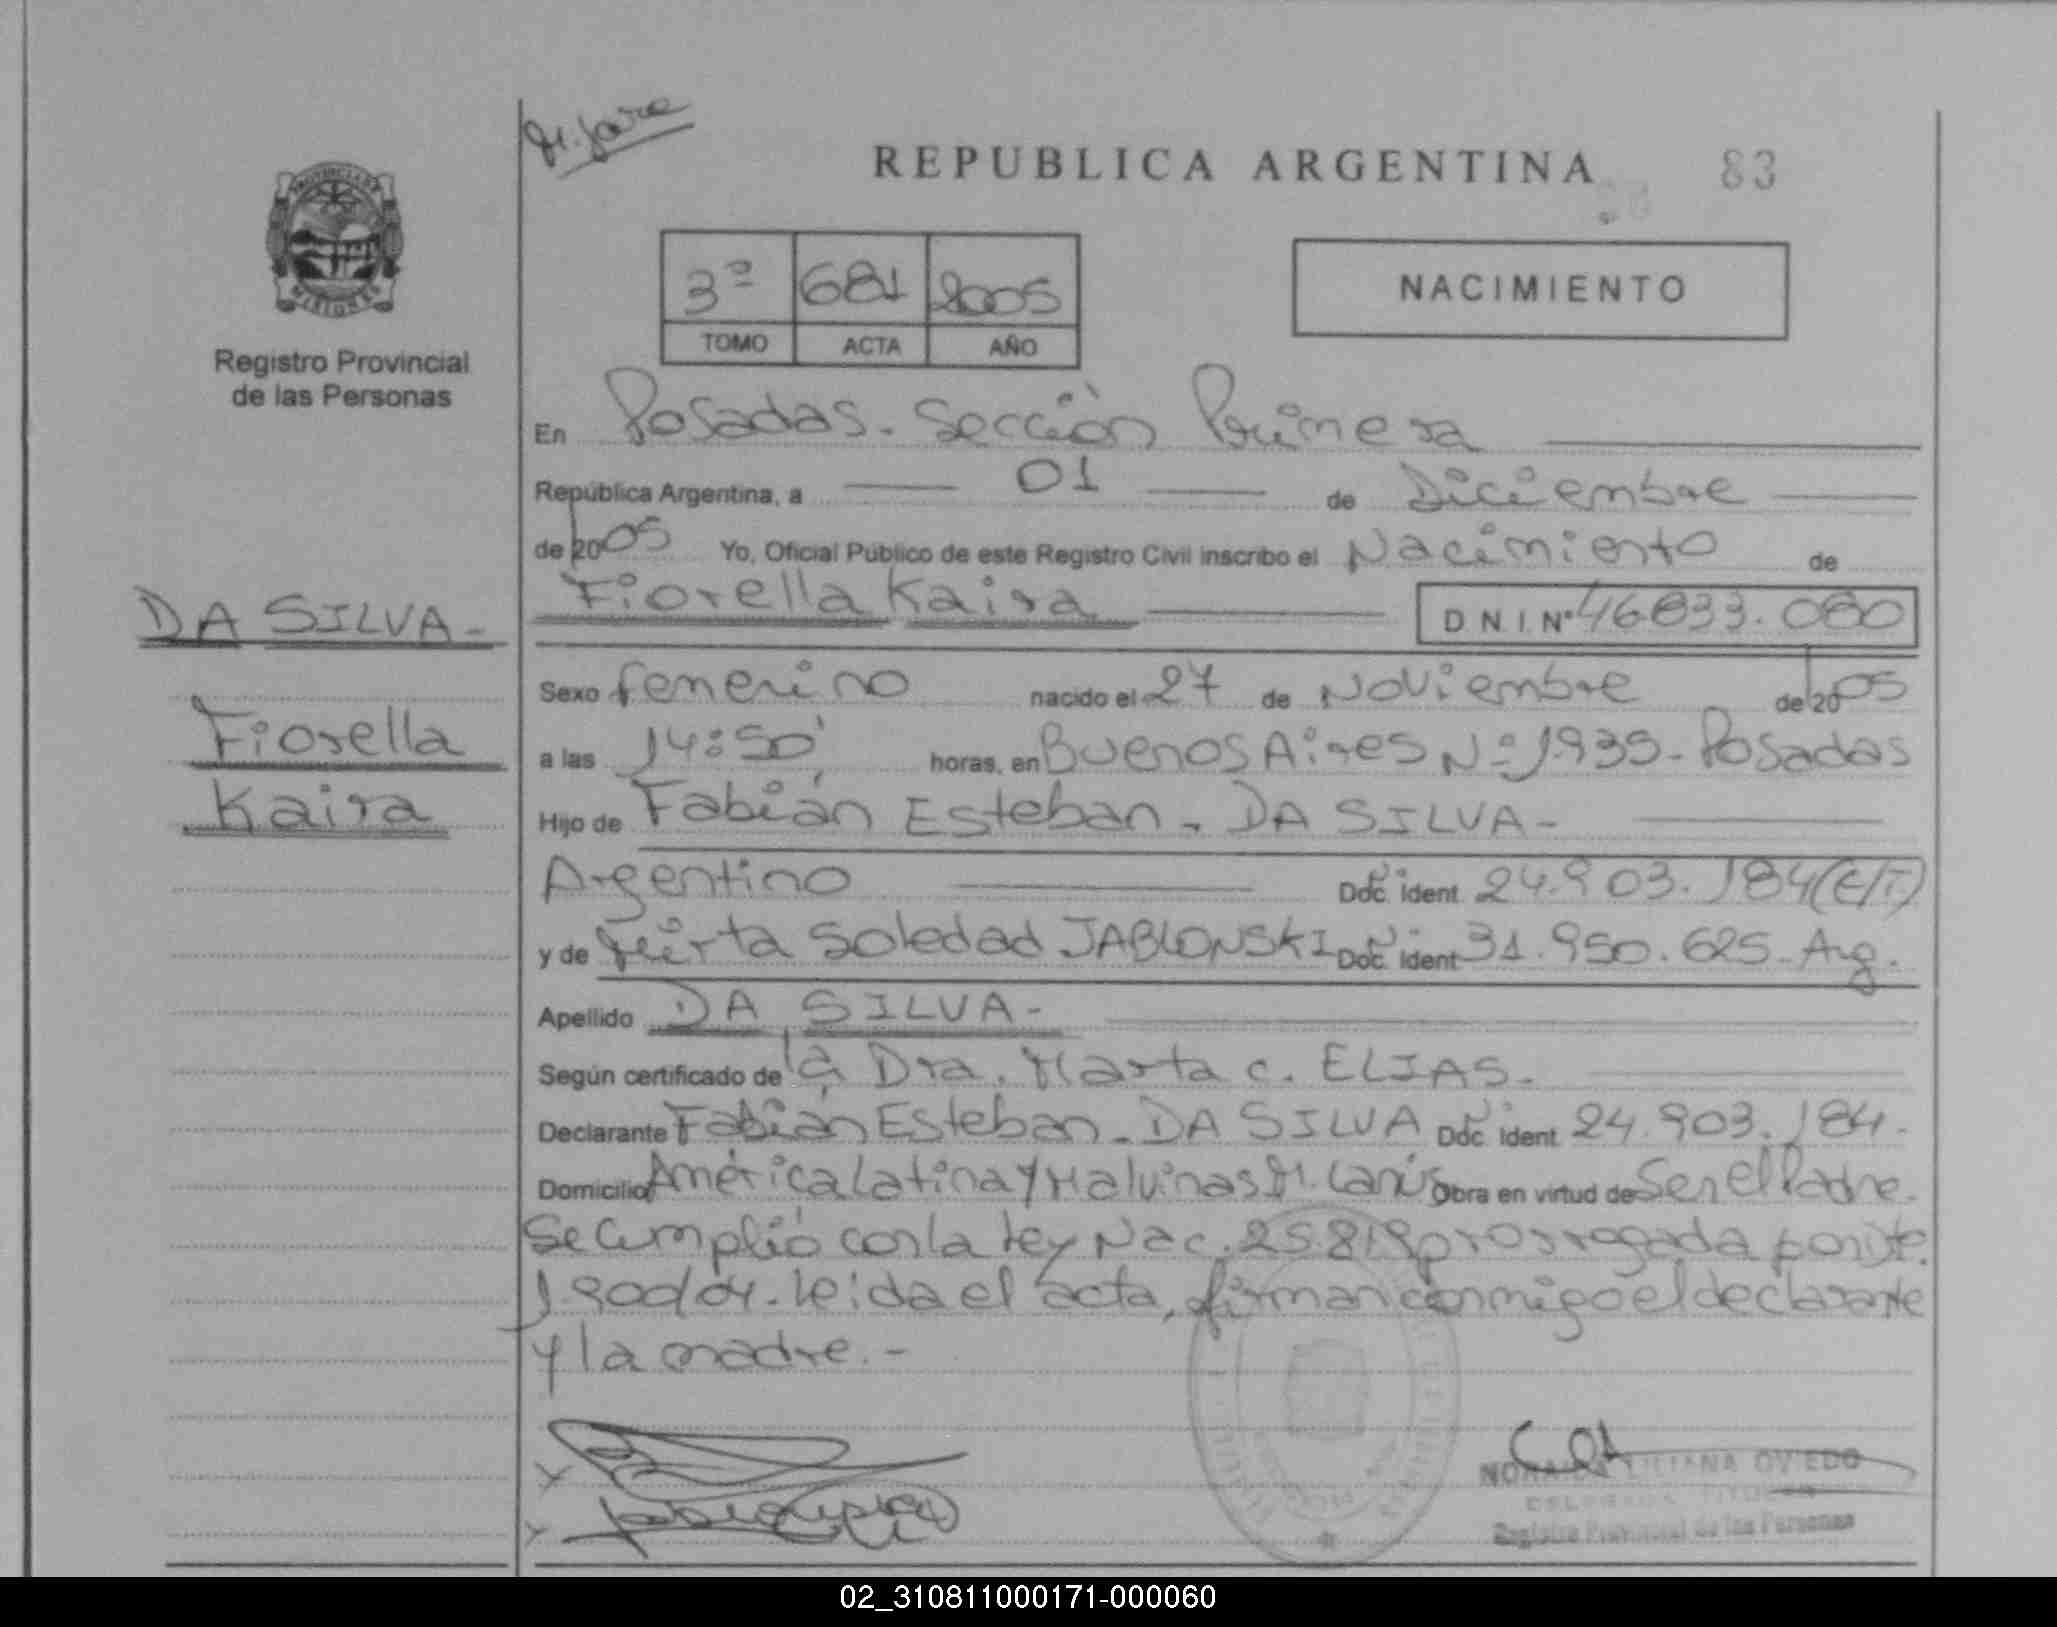 REPUBLICA ARGENTINA
83
PROVINCIA DE
MISIONES
Registro Provincial
de las Personas
3º 681 2005
TOMO ACTA AÑO
NACIMIENTO
En Posadas. Sección Primera
República Argentina, a 01 de Diciembre
de 2005 Yo, Oficial Público de este Registro Civil inscribo el Nacimiento de
Fiorella Kaira D N. I. Nº 46833.080
DA SILVA-
Fiorella
Kaira
Sexo femenino nacido el 27 de Noviembre de 2005
a las 14:50' horas, en Buenos Aires Nº 1.935- Posadas
Hijo de Fabián Esteban. DA SILVA-
Argentino Doc. ident. 24.903.184 (E/T)
y de Mirta Soledad JABLONSKI Doc. ident 31.950.625- Arg.
Apellido DA SILVA-
Según certificado de la Dra. Marta C. ELIAS.
Declarante Fabián Esteban. DA SILVA Doc. ident. 24.903.184.
Domicilio América Latina y Malvinas M. Lanús Obra en virtud de Ser el Padre.
Se cumplió con la Ley Nac. 25819 prorrogada por
1.900/04. Leida el acta, firman conmigo el declarante
y la madre.-
LILIANA OVIEDO
Registro Provincial de las Personas
02_310811000171-000060